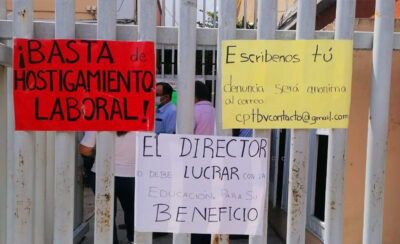 ¡BASTA de
HOSTIGAMIENTO
LABORAL!
Escribenos tú
denuncia será anonima
al correo
cptbvcontacto@gmail.com
EL DIRECTOR
O DEBE LUCRAR CON LA
EDUCACIÓN PARA SU
BENEFICIO